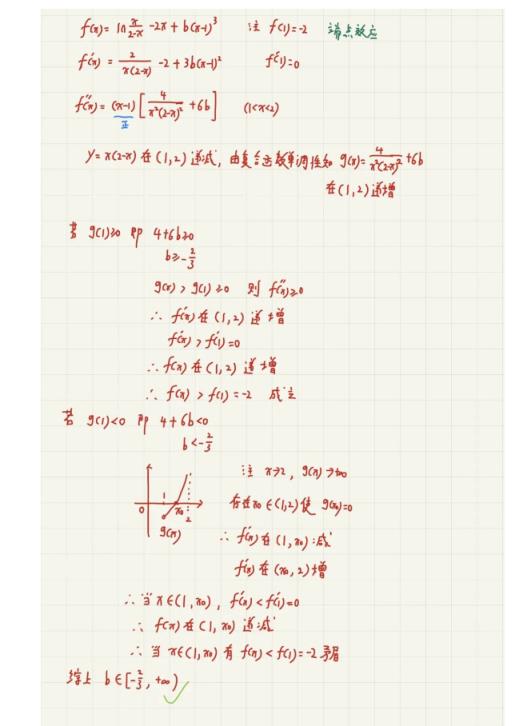 f(x) = ln x/(2-x) -2x + b(x-1)³ 注 f(1)=-2 端点效应
f'(x) = 2/(x(2-x)) -2 + 3b(x-1)² f'(1)=0
f''(x) = (x-1) [4/(x²(2-x)²) +6b] (1<x<2)
正
y = x(2-x) 在 (1,2) 递减, 由复合函数单调性知 g(x) = 4/(x²(2-x)²) +6b
在 (1,2) 递增
若 g(1)≥0 即 4+6b≥0
b≥-2/3
g(x) > g(1) ≥0 则 f''(x)≥0
∴ f'(x) 在 (1,2) 递增
f'(x) > f'(1)=0
∴ f(x) 在 (1,2) 递增
∴ f(x) > f(1) =-2 成立
若 g(1)<0 即 4+6b<0
b<-2/3
注 x→2, g(x)→+∞
存在 x₀∈(1,2) 使 g(x₀)=0
0 1 x₀ 2
g(x)
∴ f'(x) 在 (1, x₀) 减
f'(x) 在 (x₀, 2) 增
∴ 当 x∈(1, x₀), f'(x) < f'(1)=0
∴ f(x) 在 (1, x₀) 递减
∴ 当 x∈(1, x₀) 有 f(x) < f(1) =-2 矛盾
综上 b∈[-2/3, +∞)